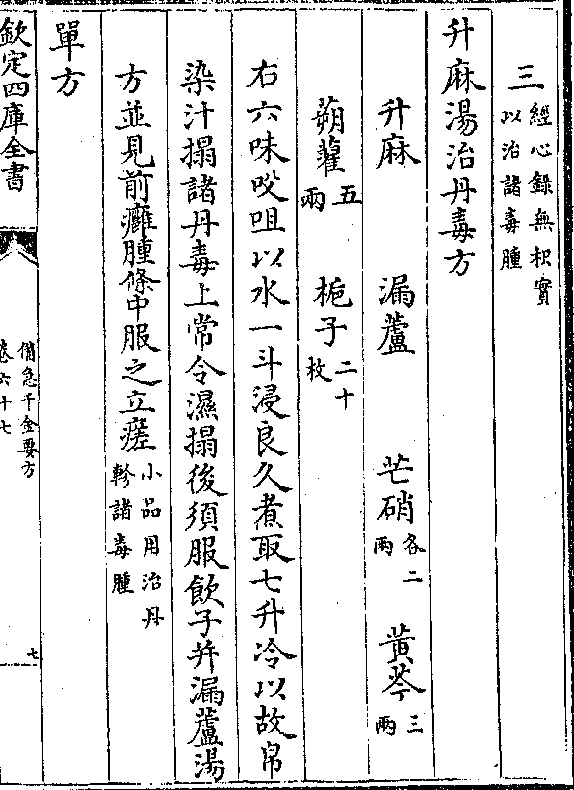 三經心錄無枳實以治諸毒腫
升麻湯治丹毒方
升麻 漏蘆 芒硝各二兩 黃芩三兩
蒴藋五兩 梔子二十枚
右六味㕮咀以水一斗浸良久煮取七升冷以故帛
染汁搨諸丹毒上常令濕搨後須服飲子并漏蘆湯
方並見前癰腫條中服之立瘥小品用治丹軫諸毒腫
單方
欽定四庫全書
備急千金要方
卷六十七
七